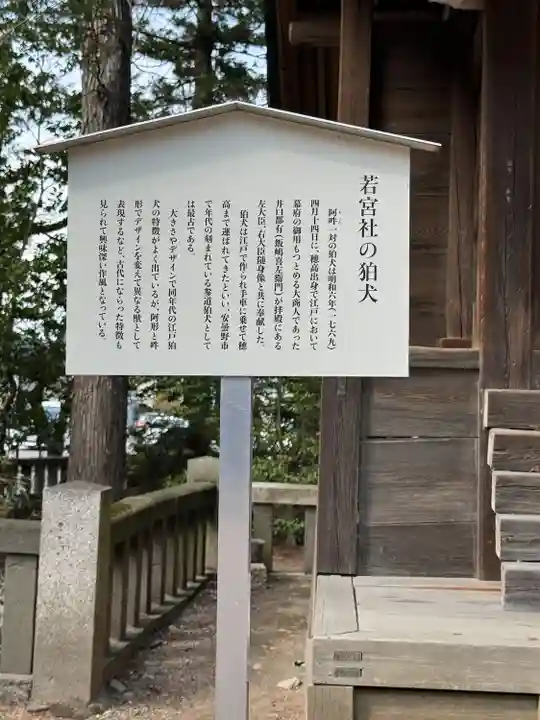 若宮社の狛犬
阿吽一対の狛犬は明和六年(一七六九)
四月十四日に、穂高出身で江戸において
幕府の御用もつとめる大商人であった
井口郡有(飯嶋喜左衛門)が拝殿にある
左大臣、右大臣随身像と共に奉献した。
狛犬は江戸で作られ手車に乗せて穂
高まで運ばれてきたといい、安曇野市
で年代の刻まれている参道狛犬として
は最古である。
大きさやデザインで同年代の江戸狛
犬の特徴がよく出ているが、阿形と吽
形でデザインを変えて異なる獣として
表現するなど、古代にならった特徴も
見られて興味深い作風となっている。